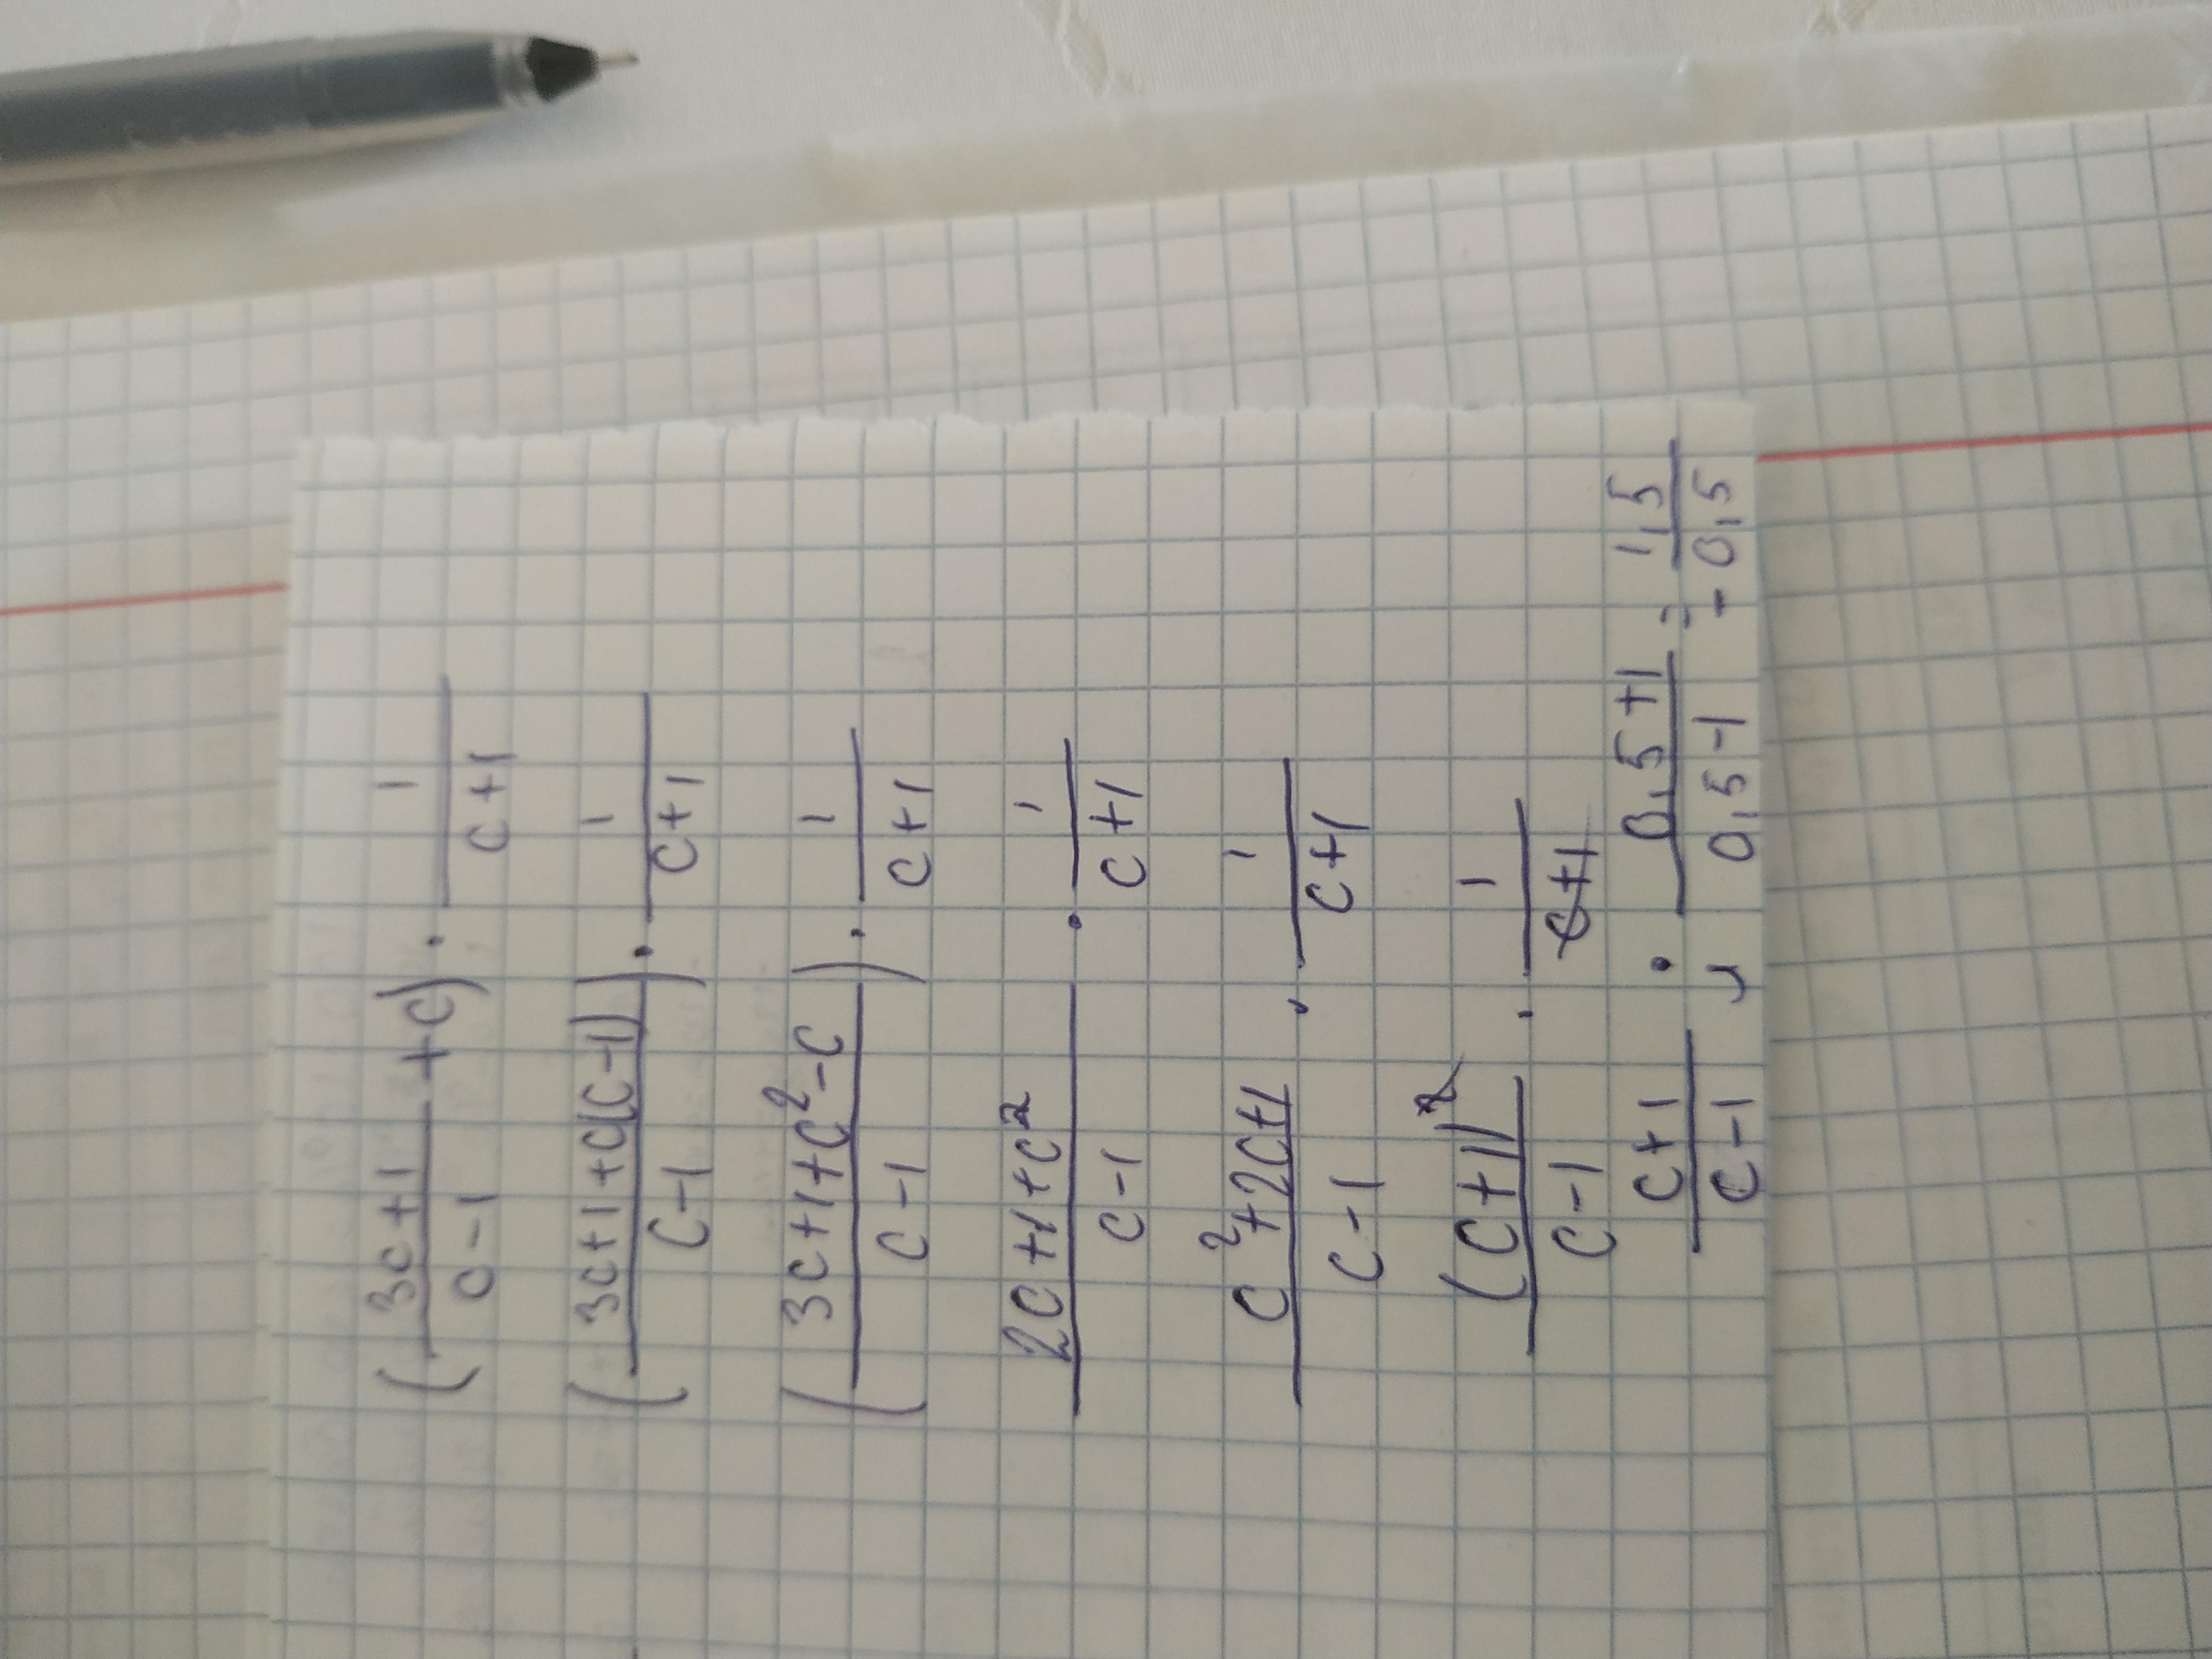 (3c+1/c-1 + c) · 1/c+1
(3c+1+c(c-1)/c-1) · 1/c+1
(3c+1+c²-c/c-1) · 1/c+1
2c+1+c²/c-1 · 1/c+1
c²+2c+1/c-1 · 1/c+1
(c+1)²/c-1 · 1/c+1
c+1/c-1 ; 0,5+1/0,5-1 = 1,5/-0,5